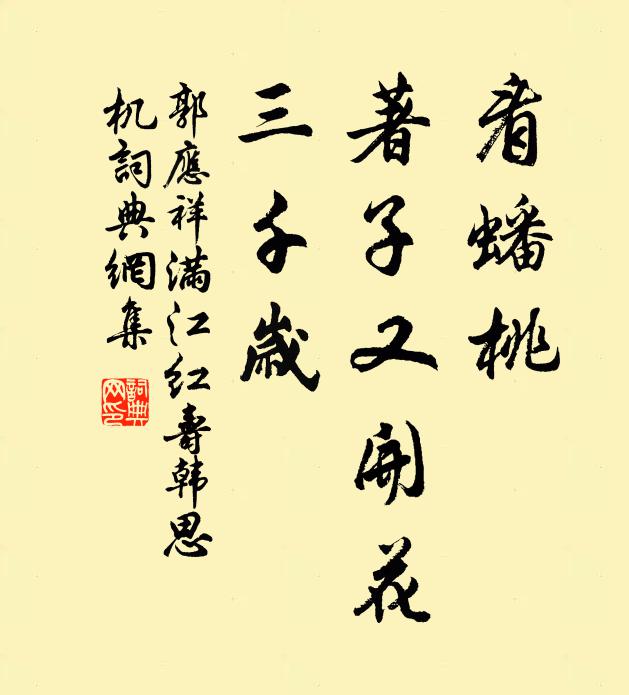 看蟠桃
著子又開花
三千歲
郭應祥滿江紅壽韩思
机詞典網集
詞典
网印